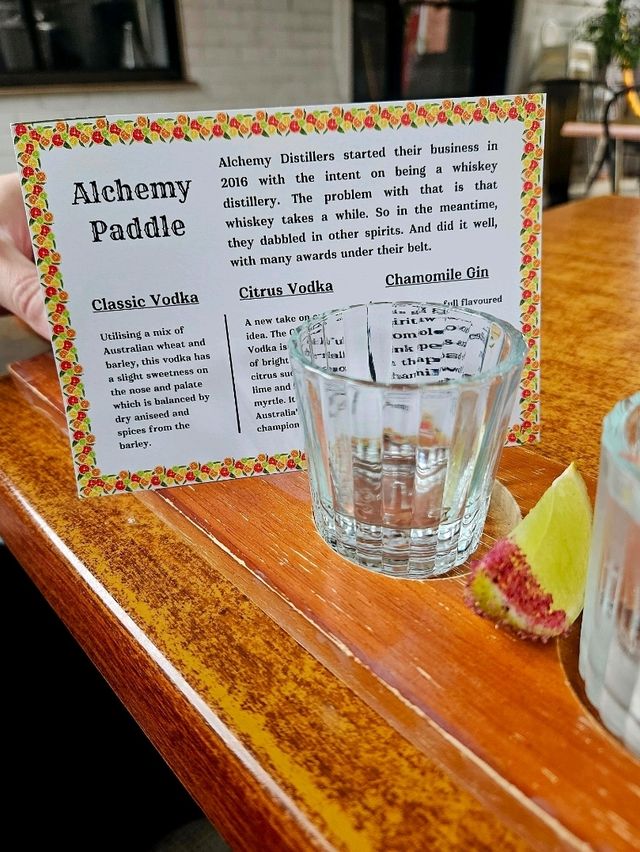 Alchemy
Paddle
Alchemy Distillers started their business in
2016 with the intent on being a whiskey
distillery. The problem with that is that
whiskey takes a while. So in the meantime,
they dabbled in other spirits. And did it well,
with many awards under their belt.
Classic Vodka
Utilising a mix of
Australian wheat and
barley, this vodka has
a slight sweetness on
the nose and palate
which is balanced by
dry aniseed and
spices from the
barley.
Citrus Vodka
A new take on
idea. The
Vodka is
of bright
citrus
lime and
myrtle.
Australia'
champion
Chamomile Gin
full flavoured